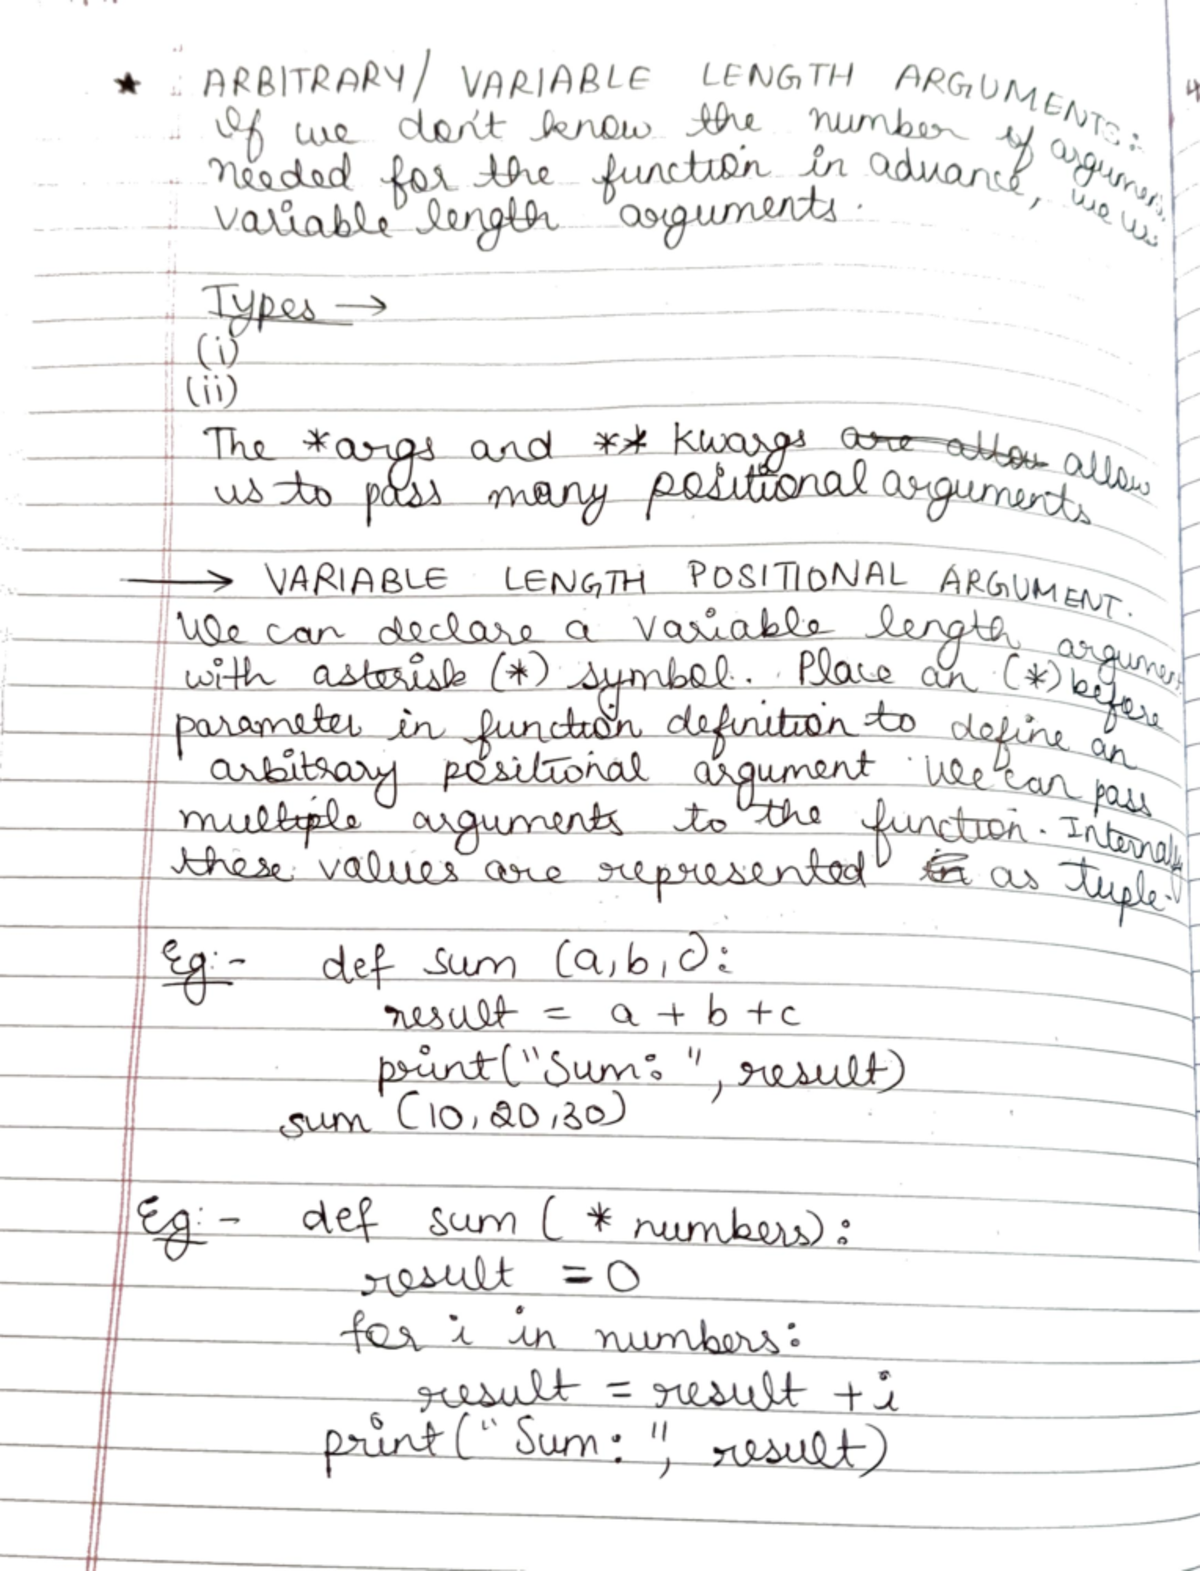 ★ ARBITRARY/ VARIABLE LENGTH ARGUMENTS:
If we don't know the number of argumen
needed for the function in advance, we us
variable length arguments.
Types →
(i)
(ii)
The *args and ** kwargs are allow allow
us to pass many positional arguments
→ VARIABLE LENGTH POSITIONAL ARGUMENT.
We can declare a variable length argument
with asterisk (*) symbol. Place an (*) before
parameter in function definition to define an
arbitrary positional argument. We can pass
multiple arguments to the function. Internally
these values are represented in as tuple.
Eg:- def sum (a,b,c):
result = a + b + c
print("Sum: ", result)
sum (10, 20, 30)
Eg:- def sum ( * numbers):
result = 0
for i in numbers:
result = result + i
print("Sum: ", result)